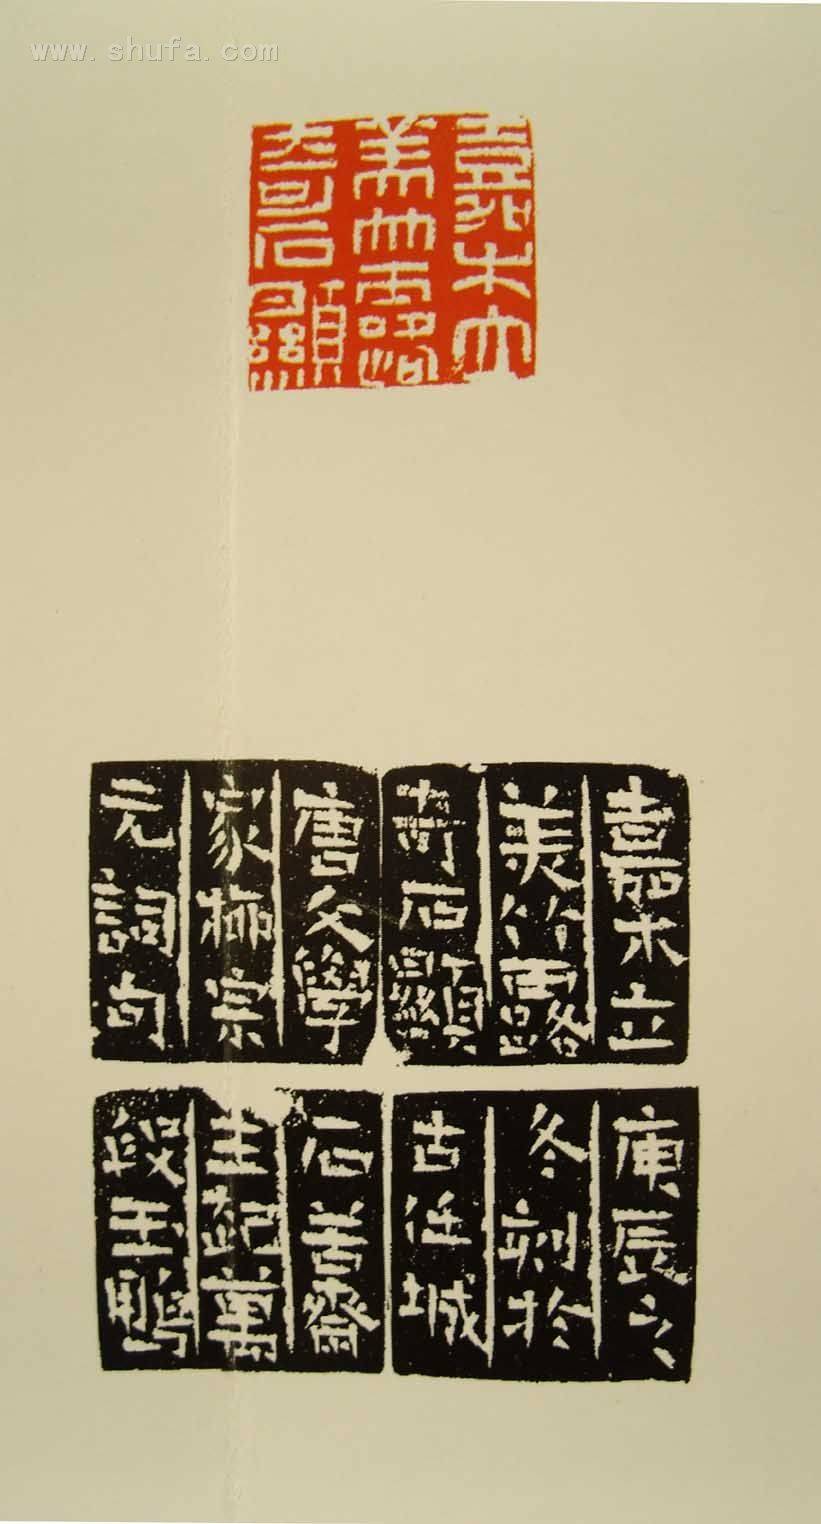 www.shufa.com
嘉木立
美竹露
奇石顯
嘉木立
美竹露
奇石顯
唐文學
家柳宗
元詞句
庚辰之
冬刻於
古任城
石齋
主萬
段玉鵬